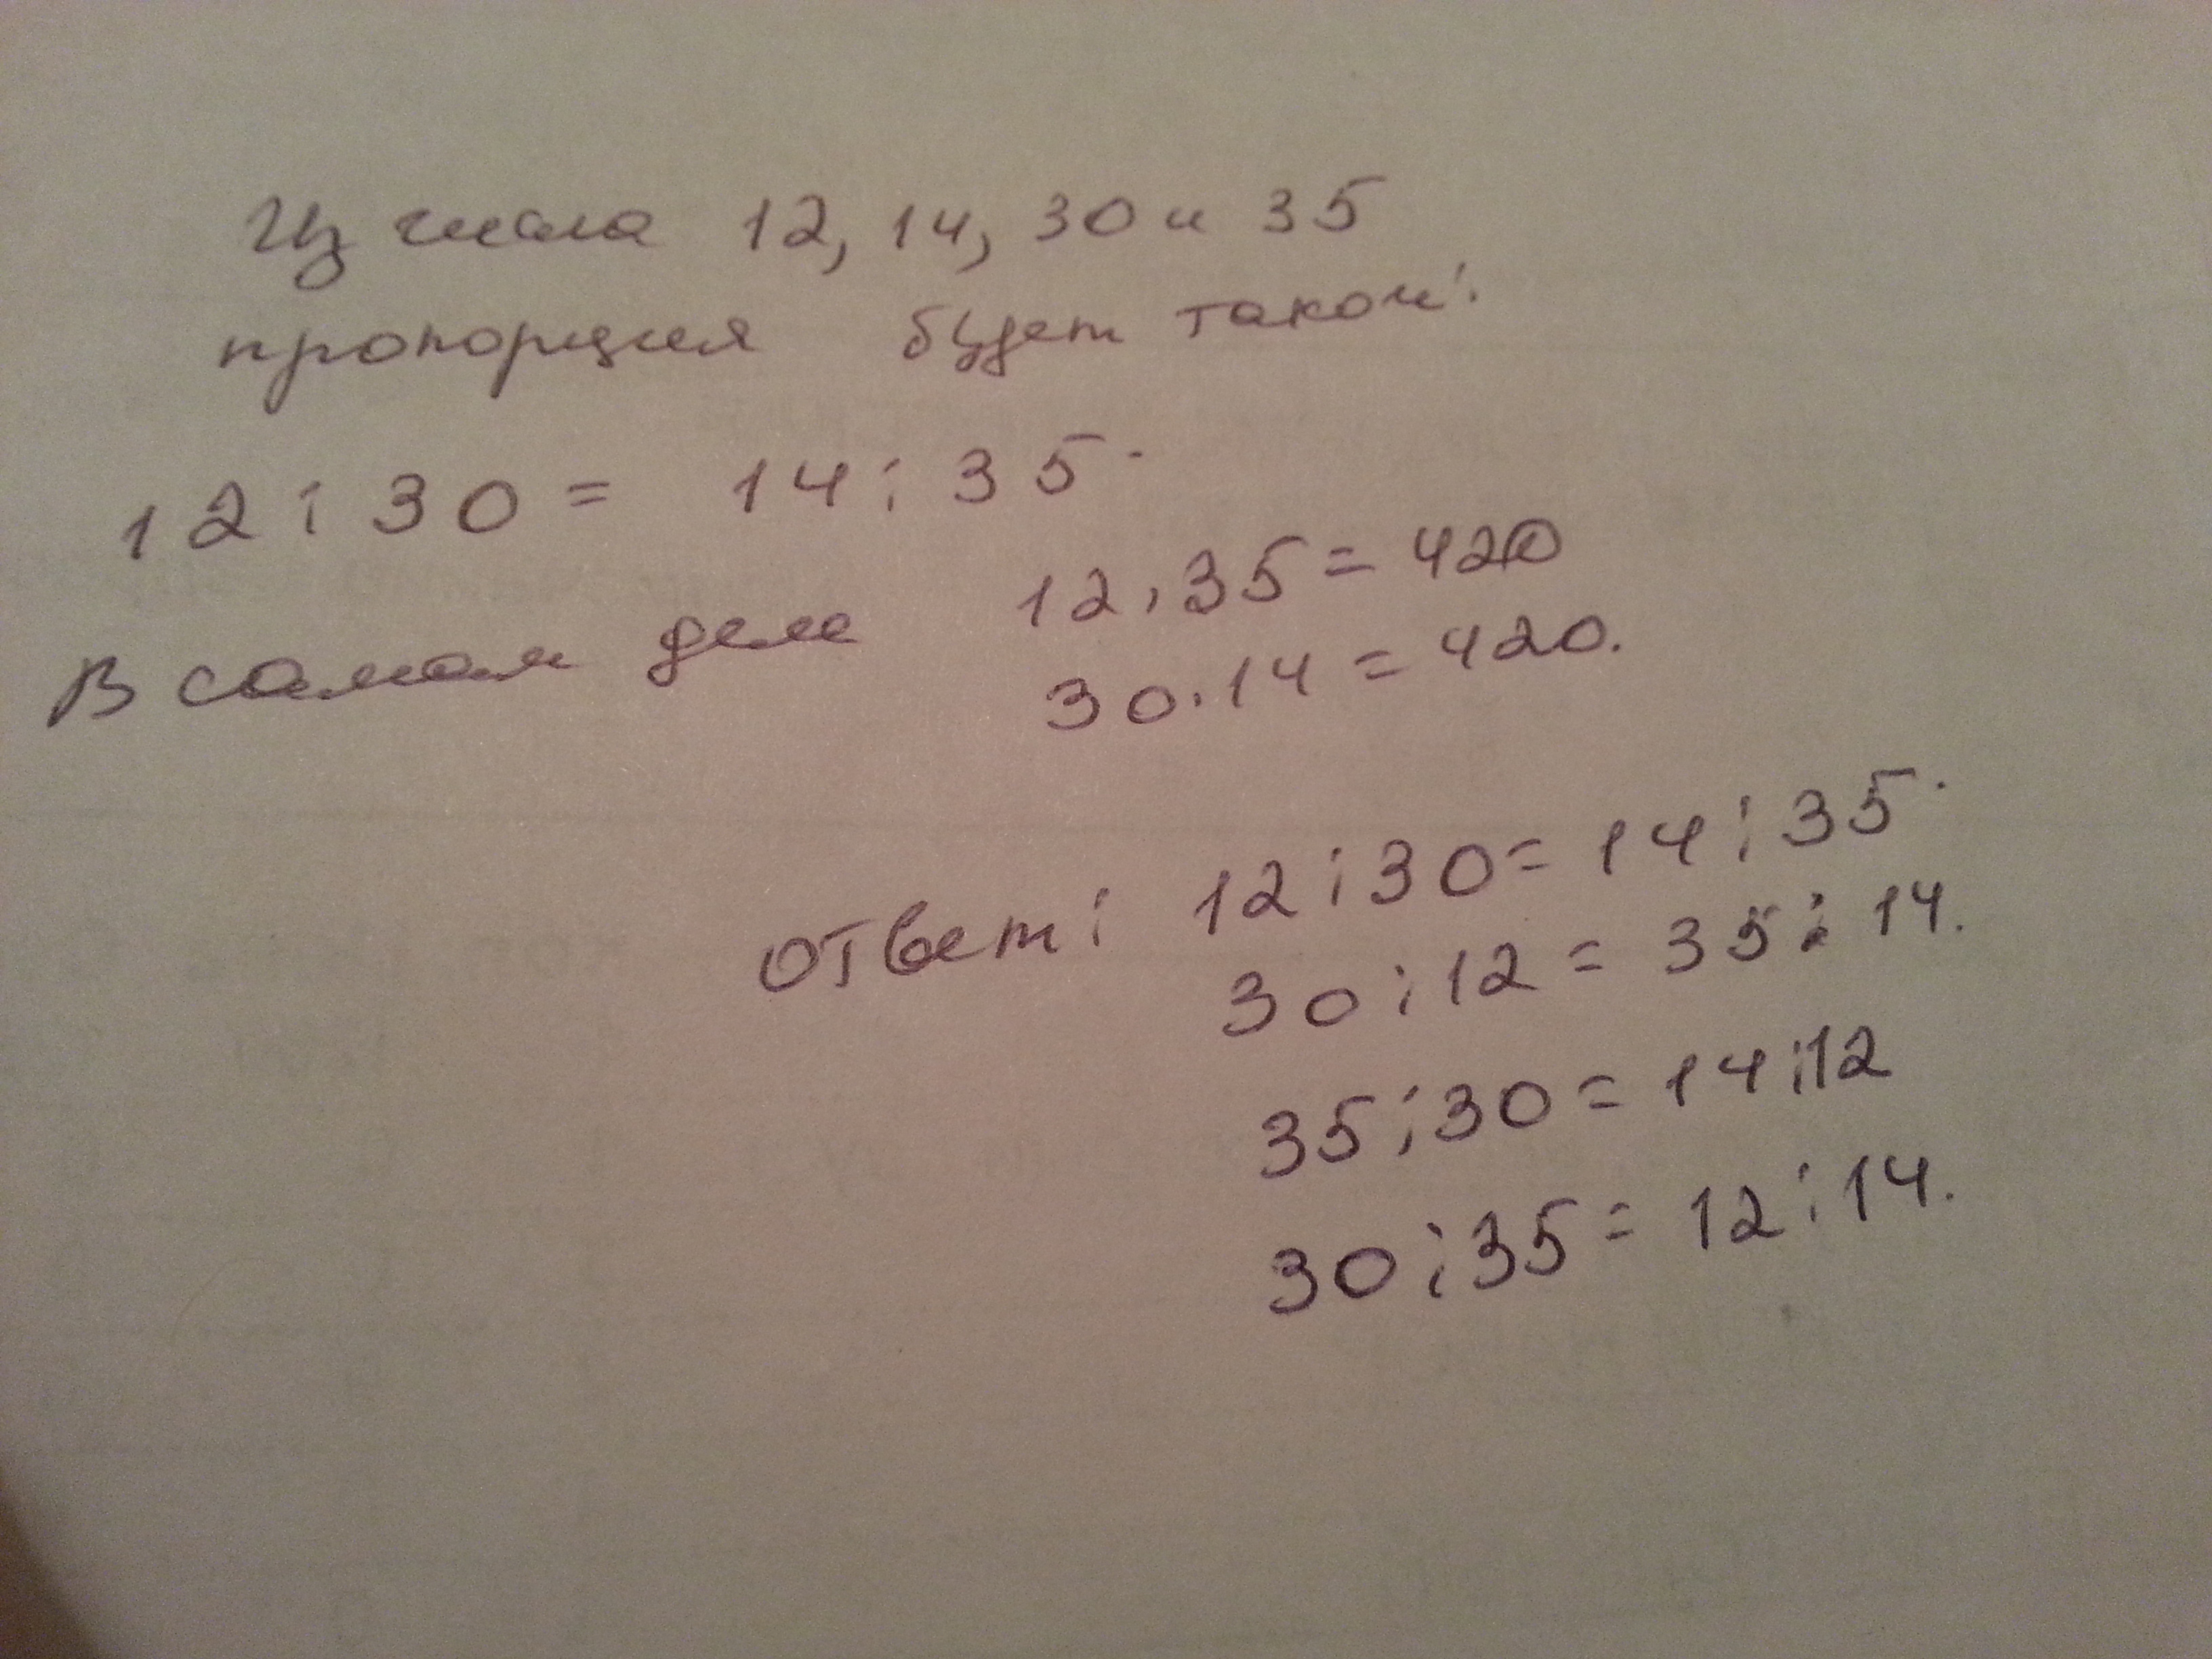 Из числа 12, 14, 30 и 35
пропорция будет такой:
12 : 30 = 14 : 35.
В самом деле 12 · 35 = 420
30 · 14 = 420.
Ответ: 12 : 30 = 14 : 35.
30 : 12 = 35 : 14.
35 : 30 = 14 : 12
30 : 35 = 12 : 14.